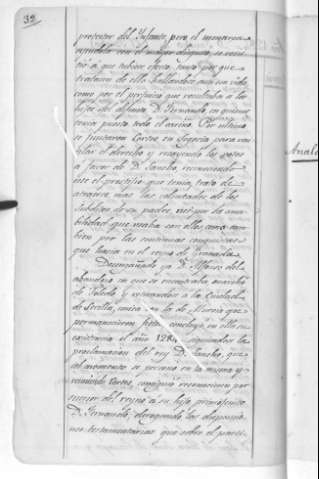 39
protector del Infante, pero el monarca
se resistió
á que tubiese efecto, tanto por que
tratasen de ello hallandose aun en vida
como por el perjuicio que resultaba á los
hijos del difunto D. Fernando, en quienes
tenia puesto todo el cariño. Por ultimo
se juntaron Cortes en Segovia para ven
tilar el derecho y recayendo los votos
á favor de D. Sancho, reconociendo
este el prestigio que tenia, trató de
atraerse mas las voluntades de los
subditos de su padre, así por la ama
bilidad que usaba con ellos, como tam
bien por las continuas conquistas
que hacia en el reyno de Granada.
Desengañado ya D. Alfonso del
abandono en que se encontraba marchó
de Toledo y retirandose á la Ciudad
de Sevilla, única con la de Murcia que
permanecieron fieles, concluyó en ella su
existencia el año 1284, siguiendose la
proclamacion del rey D. Sancho, que
al momento se personó en la misma y
reuniendo Cortes, consiguió reconociesen por
sucesor del reyno á su hijo primogenito
D. Fernando, derogando las disposicio
nes testamentarias que sobre el parti
Anale